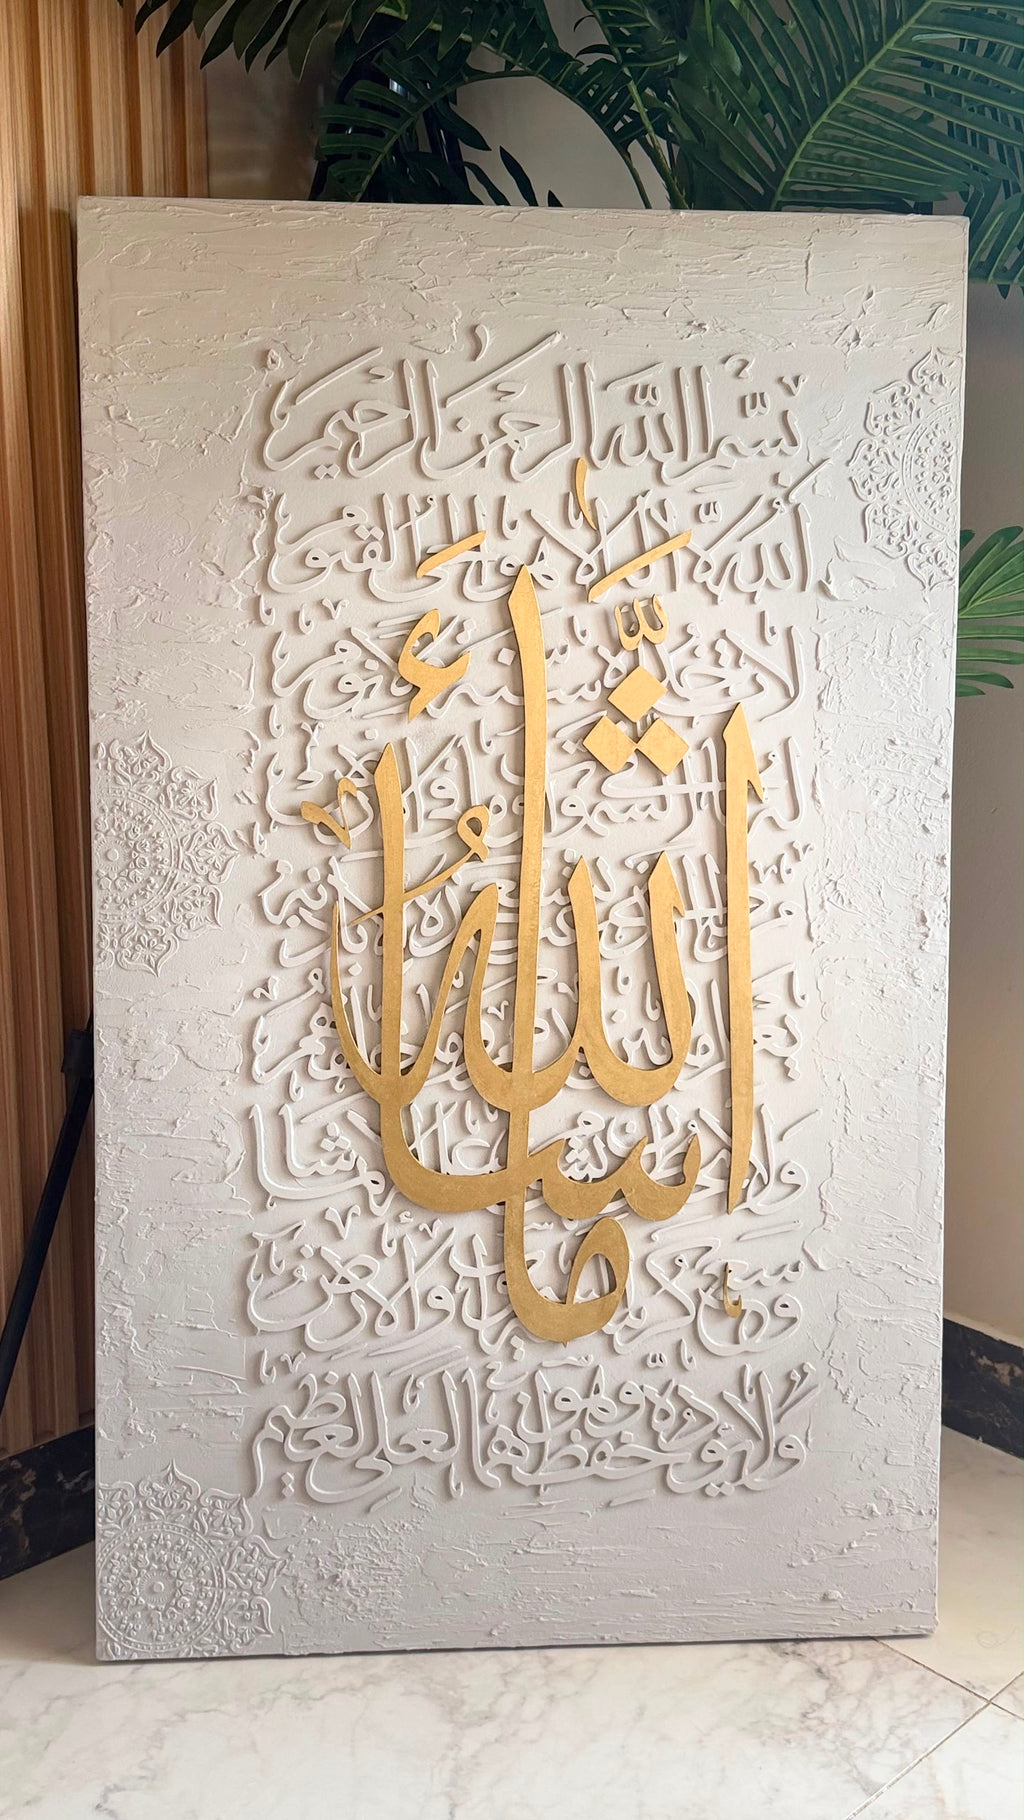 بِسْمِ اللَّهِ الرَّحْمَنِ الرَّحِيمِ
اللَّهُ لَا إِلَهَ إِلَّا هُوَ الْحَيُّ الْقَيُّومُ
لَا تَأْخُذُهُ سِنَةٌ وَلَا نَوْمٌ
لَهُ مَا فِي السَّمَوَاتِ وَمَا فِي الْأَرْضِ
يَعْلَمُ مَا بَيْنَ
وَلَا يُحِيطُونَ بِشَيْءٍ إِلَّا بِمَا شَاءَ
وَسِعَ كُرْسِيُّهُ السَّمَوَاتِ وَالْأَرْضَ
وَلَا يَئُودُهُ حِفْظُهُمَا وَهُوَ الْعَلِيُّ الْعَظِيمُ
مَا شَاءَ اللَّهُ